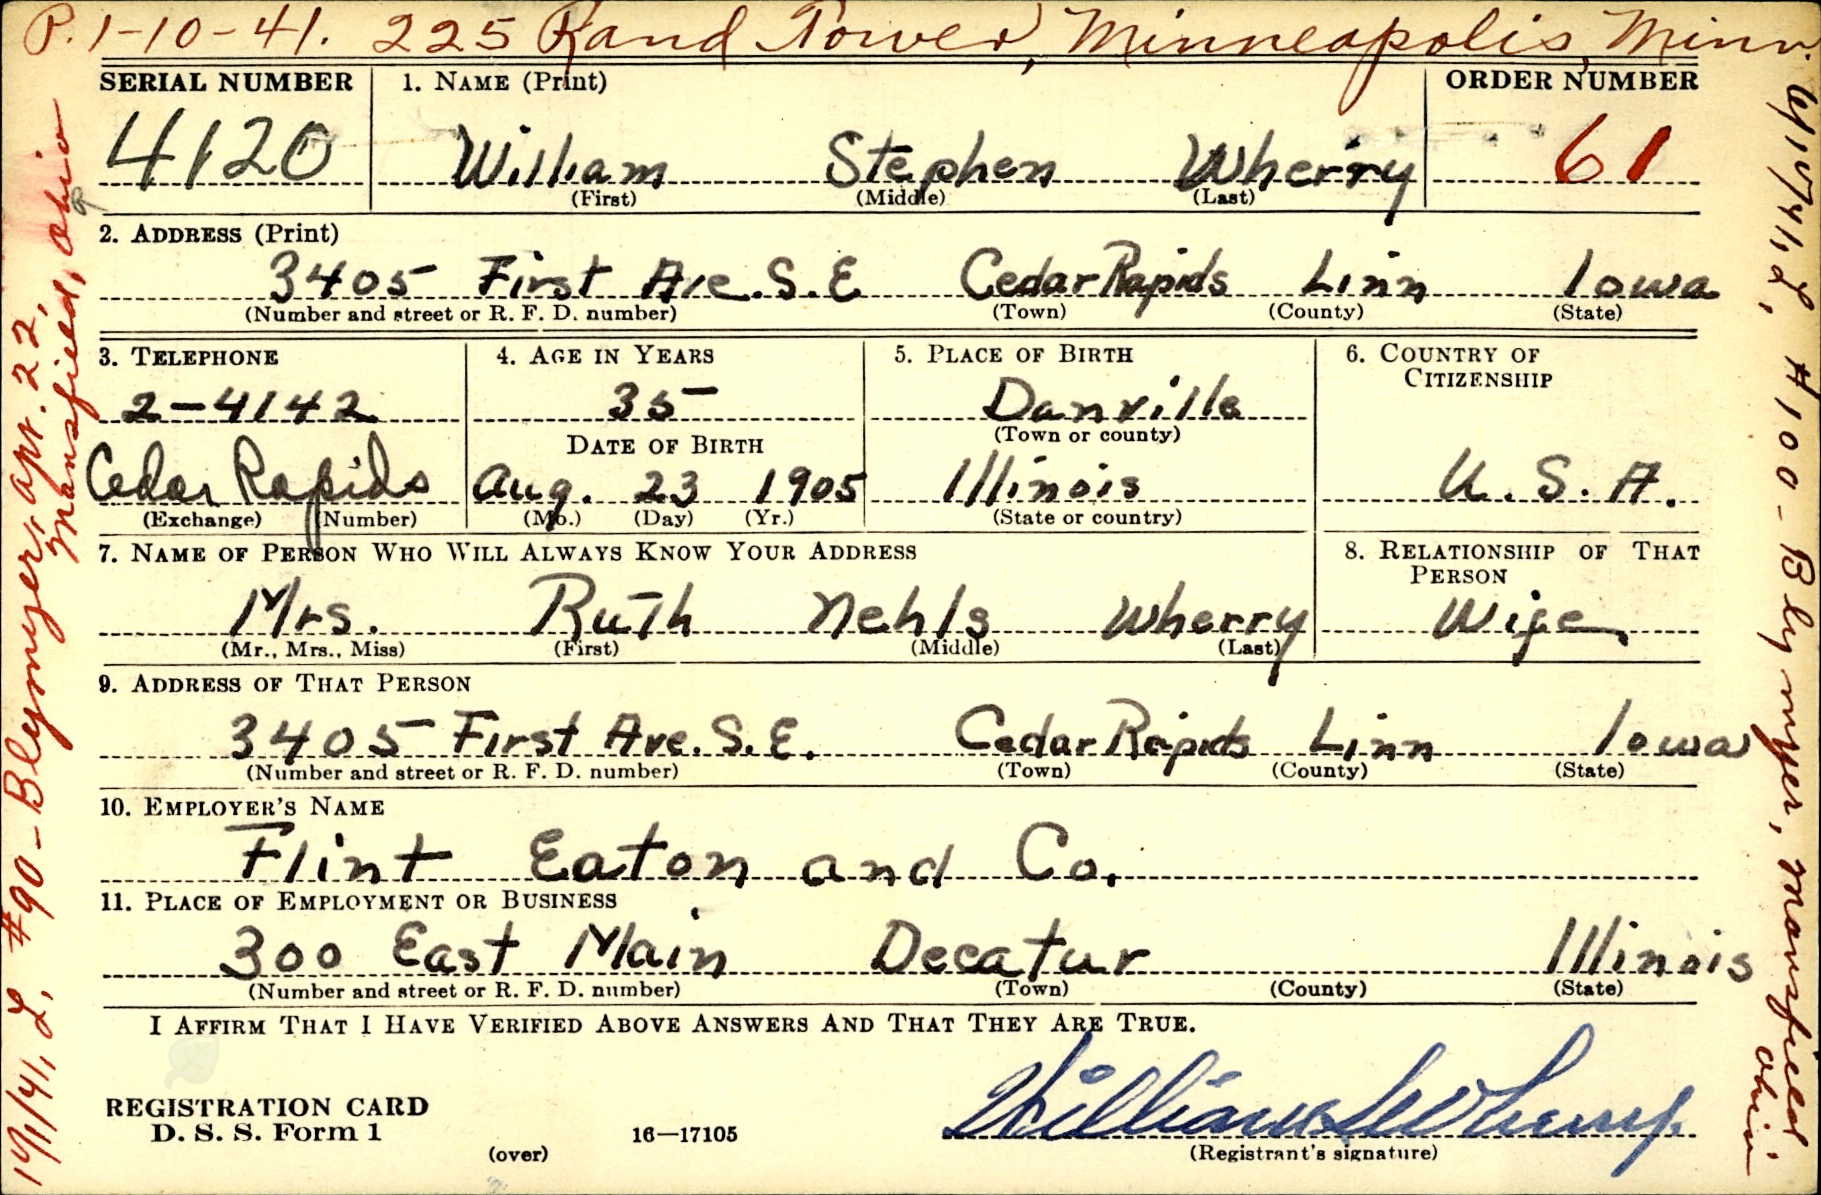 P. 1-10-41. 225 Rand Tower, Minneapolis, Minn.
SERIAL NUMBER 1. NAME (Print) ORDER NUMBER
4120 William Stephen Wherry 61
(First) (Middle) (Last)
2. ADDRESS (Print)
3405 First Ave. S.E Cedar Rapids Linn Iowa
(Number and street or R. F. D. number) (Town) (County) (State)
3. TELEPHONE 4. AGE IN YEARS 5. PLACE OF BIRTH 6. COUNTRY OF
CITIZENSHIP
2-4142 35 Danville
DATE OF BIRTH (Town or county)
Cedar Rapids Aug. 23 1905 Illinois U. S. A.
(Exchange) (Number) (Mo.) (Day) (Yr.) (State or country)
7. NAME OF PERSON WHO WILL ALWAYS KNOW YOUR ADDRESS 8. RELATIONSHIP OF THAT
PERSON
Mrs. Ruth Nehls Wherry Wife
(Mr., Mrs., Miss) (First) (Middle) (Last)
9. ADDRESS OF THAT PERSON
3405 First Ave. S.E. Cedar Rapids Linn Iowa
(Number and street or R. F. D. number) (Town) (County) (State)
10. EMPLOYER'S NAME
Flint Eaton and Co.
11. PLACE OF EMPLOYMENT OR BUSINESS
300 East Main Decatur Illinois
(Number and street or R. F. D. number) (Town) (County) (State)
I AFFIRM THAT I HAVE VERIFIED ABOVE ANSWERS AND THAT THEY ARE TRUE.
REGISTRATION CARD
D. S. S. Form 1 16—17105 William S Wherry.
(over) (Registrant's signature)
L, #90-Blymyer, apt. 22,
Mansfield, Ohio
L, #100-Blymyer, Mansfield
Ohio